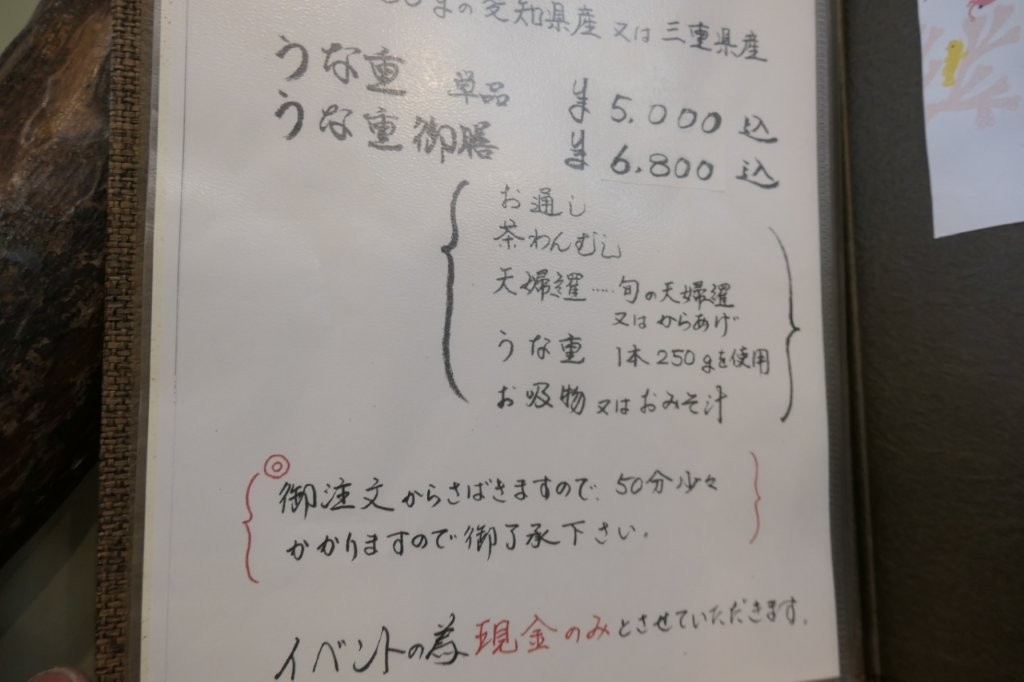 の愛知県産又は三重県産
うな重 単品 ¥5.000込
うな重御膳 ¥6.800込
お通し
茶わんむし
天婦羅……旬の天婦羅
又はからあげ
うな重 1本250gを使用
お吸物又はおみそ汁
◎
御注文からさばきますので、50分少々
かかりますので御了承下さい。
イベントの為現金のみとさせていただきます。